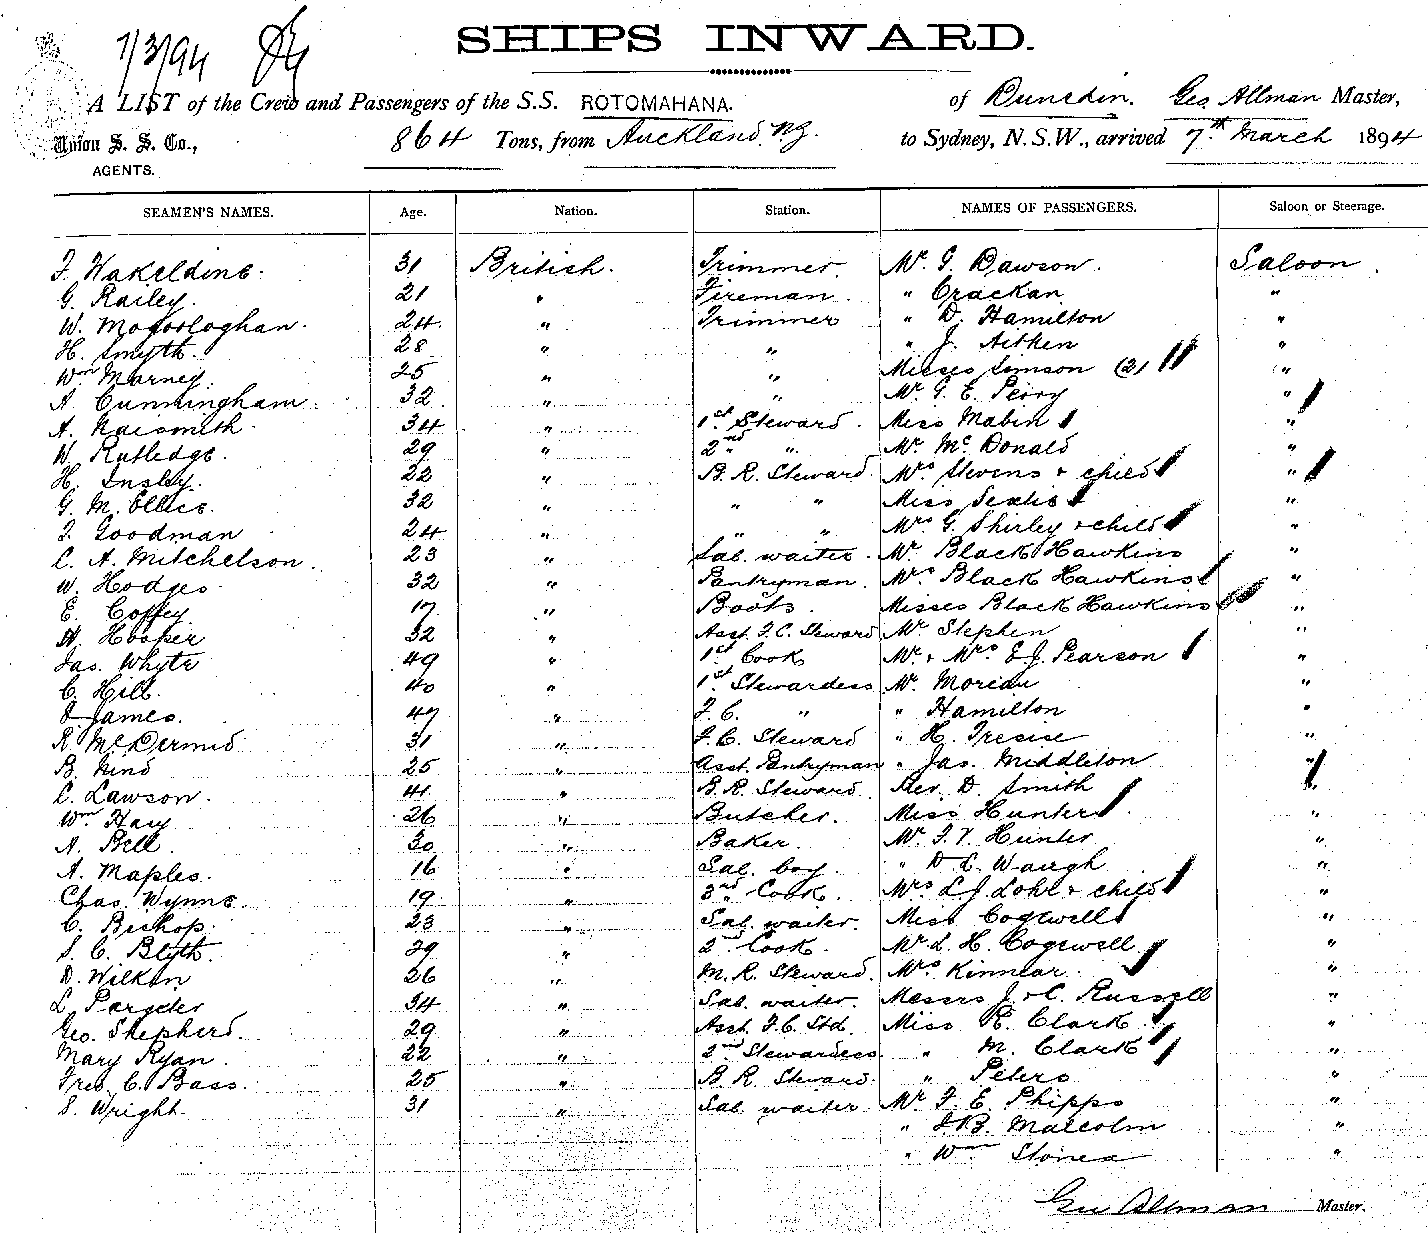 SHIPS INWARD.
7/3/94
A LIST of the Crew and Passengers of the S.S. ROTOMAHANA. of Dunedin. Geo. Allman Master,
Union S. S. Co., 864 Tons, from Auckland, N.Z. to Sydney, N.S.W., arrived 7th March 1894
AGENTS.
SEAMEN'S NAMES. Age. Nation. Station. NAMES OF PASSENGERS. Saloon or Steerage.
31 British. Trimmer. Mr. G. Dawson. Saloon.
G. Railey. 21 " Fireman. " Crackan "
W. 24. " Trimmer " D. Hamilton "
H. Smyth. 28 " " " J. Aitken "
Wm Marney. 25 " " Misses Simson (2) "
A. Cunningham. 32 " " Mr. G. E. Perry "
A. Naismith. 34 " 1st. Steward. Miss Mabin "
W. Rutledge. 29 " 2nd " Mr. McDonald "
H. Insley. 22 " B. R. Steward Mrs Stevens + child "
G. M. Ellice. 32 " " " Miss "
J. Goodman 24 " " " Mrs G. Shirley + child "
C. A. Mitchelson. 23 " Sal. waiter. Mr. Black Hawkins "
W. Hodges 32 " Pantryman. Mrs. Black Hawkins "
E. Coffey. 17 " Boots. Misses Black Hawkins "
H. Hooper 32 " Asst. F.C. Steward Mr. Stephen "
Jas. Whyte 49 " 1st Cook Mr. + Mrs. E. J. Pearson "
C. Hill. 40 " 1st. Stewardess Mr. Moreau "
James. 47 " F.C. " " Hamilton "
R. McDermid 31 " F.C. Steward " H. Tresise "
B. Hind 25 " Asst. Pantryman " Jas. Middleton "
C. Lawson. 41. " B.R. Steward. Rev. D. Smith "
Wm Hay 26 " Butcher. Miss Hunter "
A. Bell. 30 " Baker. Mr. F. V. Hunter "
A. Maples. 16 " Sal. boy. " D. L. Waugh "
Chas. Wynne. 19 " 3rd Cook. Mrs L J Lohr + child "
C. Bishop. 23 " Sal. waiter. Miss Cogswell "
S. C. Blyth. 29 " 2nd Cook. Mr. L. H. Cogswell "
D. Wilkin 26 " M. R. Steward. Mrs Kinnear. "
L. Pargeter 34 " Sal. waiter. Messrs J. + C. Russell "
Geo. Shepherd. 29 " Asst. F.C. Std. Miss R. Clark. "
Mary Ryan. 22 " 2nd Stewardess. " M. Clark "
Fred. C. Bass. 25 " B. R. Steward. " Peters "
S. Wright. 31 " Sal. waiter Mr F. E. Phipps "
" Malcolm "
" Wm Stones "
Geo Allman Master.